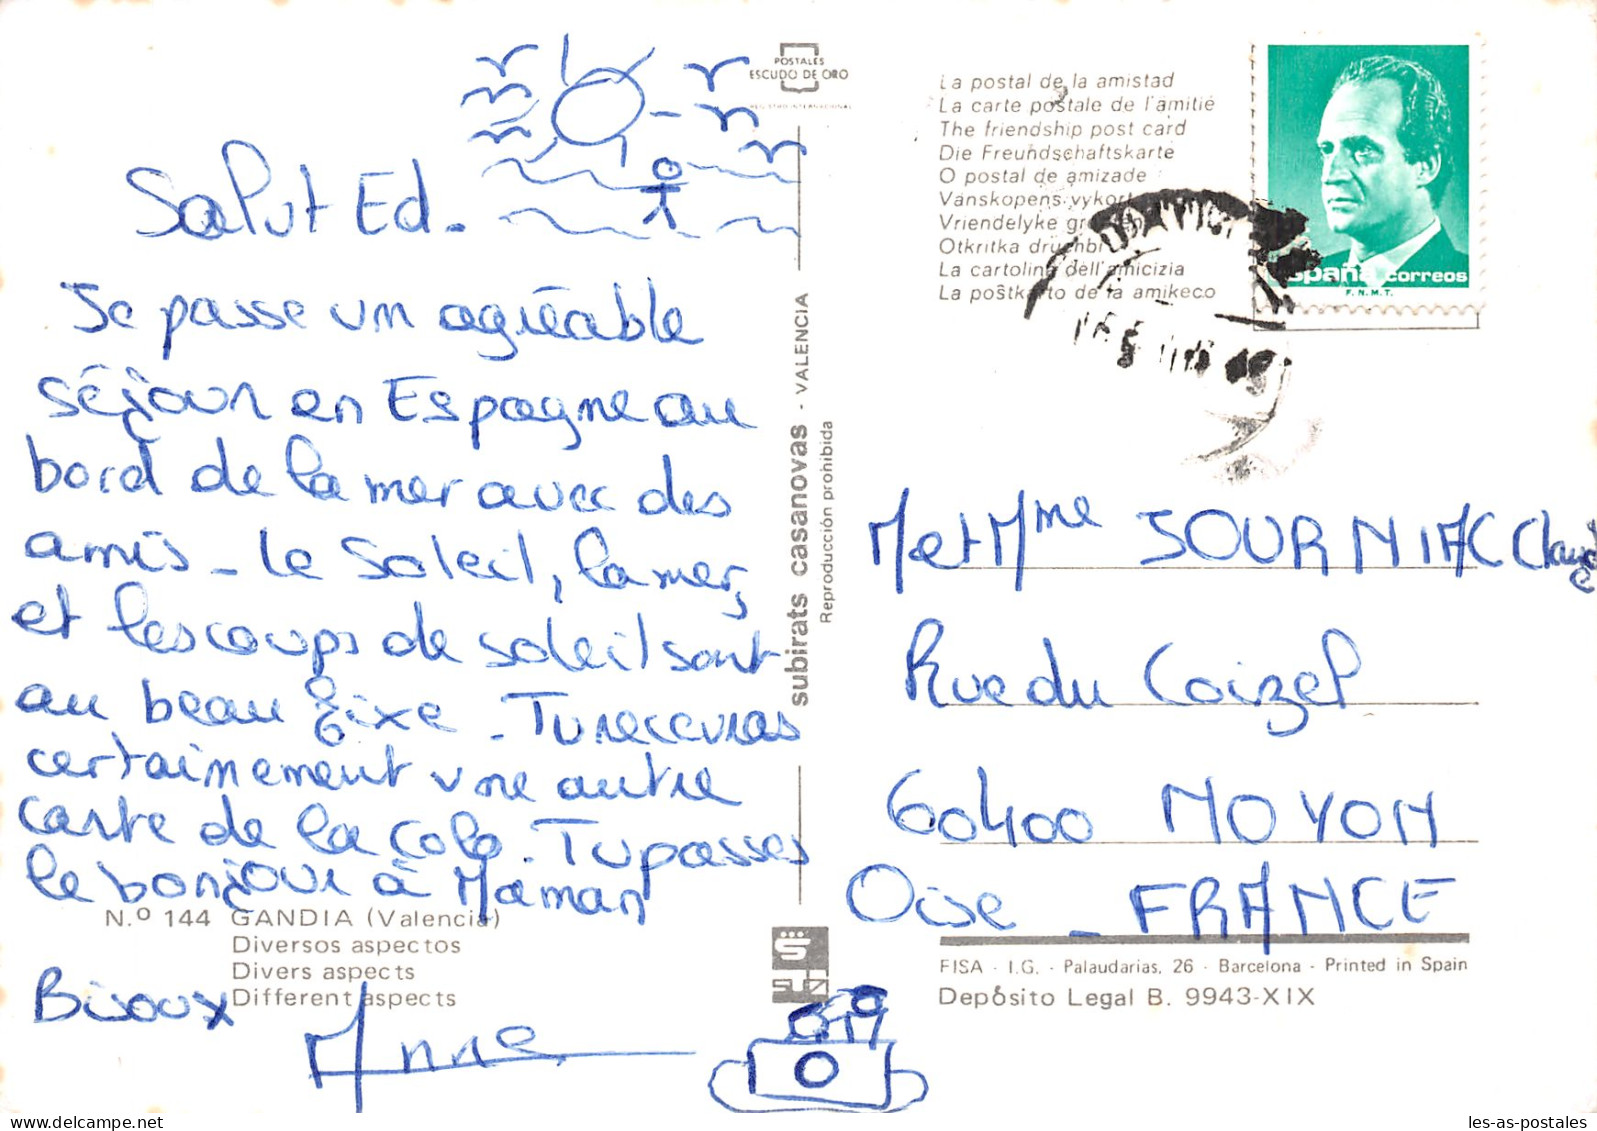 Salut Ed.
Je passe un agréable
séjour en Espagne au
bord de la mer avec des
amis - le soleil, la mer,
et les coups de soleil sont
au beau fixe. Tu recevras
certainement une autre
carte de la colo. Tu passes
le bonjour à Maman
Bisoux
Anne
N.º 144 GANDIA (Valencia)
Diversos aspectos
Divers aspects
Different aspects
POSTALES
ESCUDO DE ORO
REGISTRO INTERNACIONAL
subirats casanovas - VALENCIA
Reproducción prohibida
La postal de la amistad
La carte postale de l'amitié
The friendship post card
Die Freundschaftskarte
O postal de amizade
Vánskopens vykort
Vriendelyke
Otkritka
La cartolina dell'amicizia
La poŝtkarto de la amikeco
España correos
F.N.M.T.
M et Mme JOURNIAC Claude
Rue du Coizel
60400 NOYON
Oise - FRANCE
FISA - I.G. - Palaudarias, 26 - Barcelona - Printed in Spain
Depósito Legal B. 9943-XIX
les-as-postales